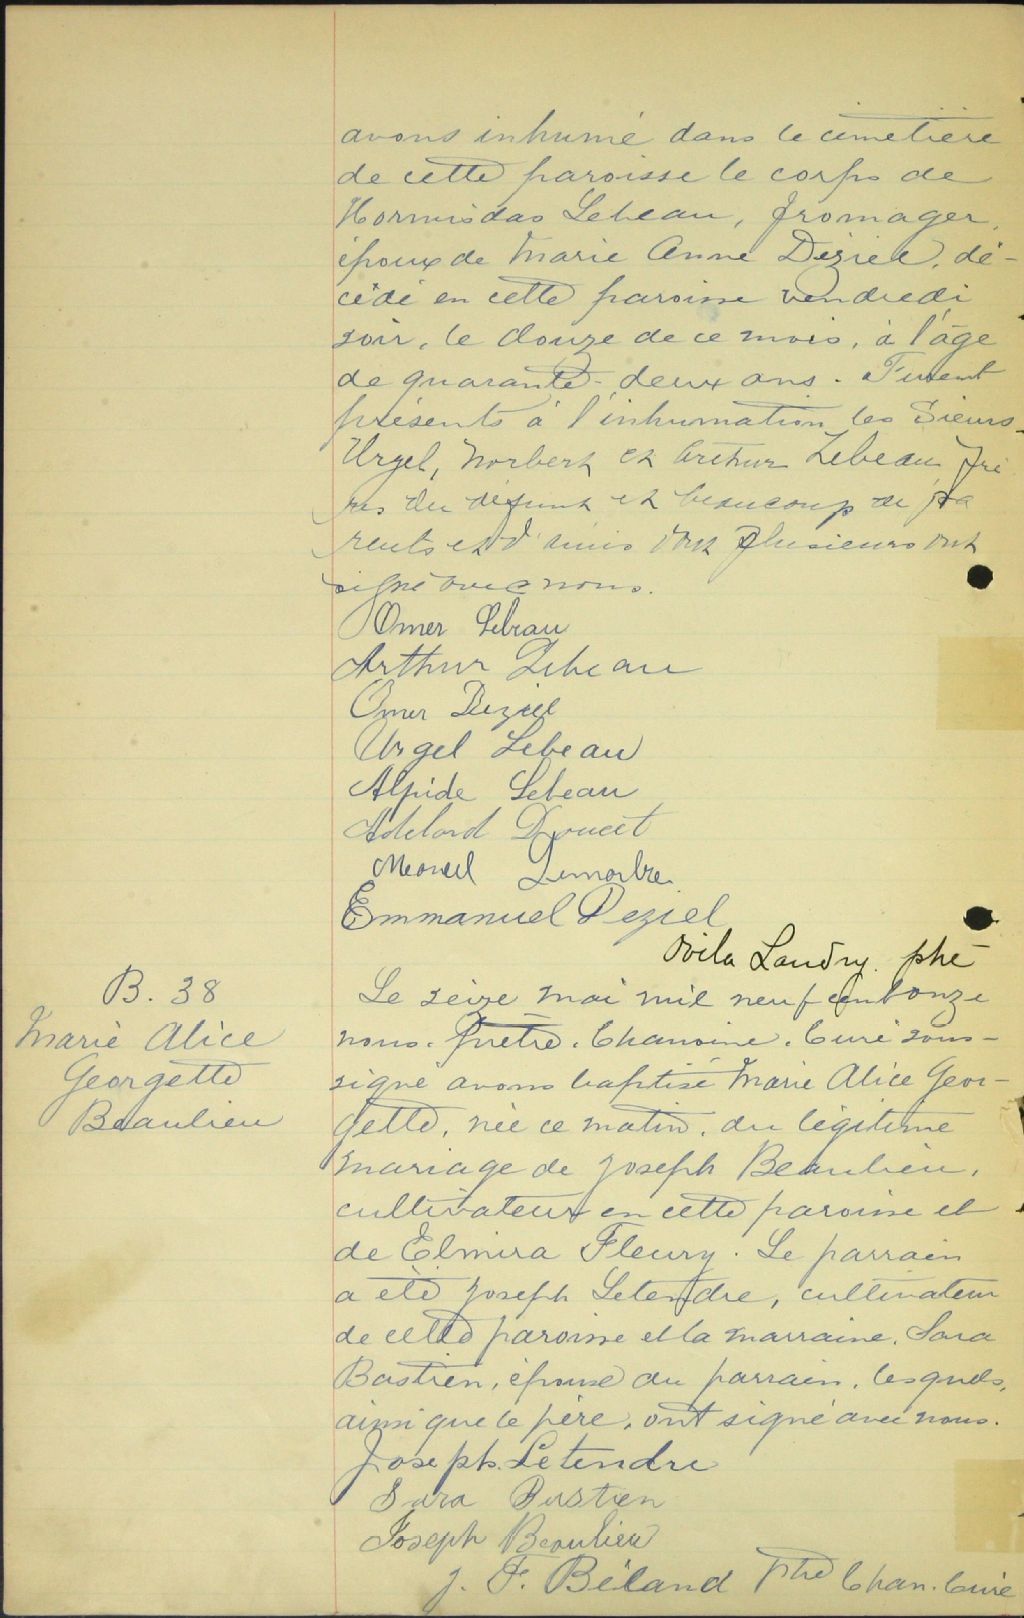 avons inhumé dans le cimetière
de cette paroisse le corps de
Hormisdas Lebeau, fromager,
époux de Marie Anne Déziel, dé-
cédé en cette paroisse vendredi
soir, le douze de ce mois, à l'âge
de quarante-deux ans. Furent
présents à l'inhumation les Sieurs
Urgel, Norbert et Arthur Lebeau frè
res du défunt et beaucoup de pa
rents et d'amis dont plusieurs ont
signé avec nous.
Omer Lebeau
Arthur Lebeau
Omer Déziel
Urgel Lebeau
Alpide Lebeau
Adelard Doucet
Emmanuel Deziel
Ovila Landry. ptre
B. 38
Marie Alice
Georgette
Beaulieu
Le seize mai mil neuf cent onze
nous. Prêtre. Chanoine. Curé sous-
signé avons baptisé Marie Alice Geor-
gette, née ce matin, du légitime
mariage de Joseph Beaulieu,
cultivateur en cette paroisse et
de Elmira Fleury. Le parrain
a été Joseph Letendre, cultivateur
de cette paroisse et la marraine, Sara
Bastien, épouse du parrain, lesquels,
ainsi que le père, ont signé avec nous.
Joseph Letendre
Sara Bastien
Joseph Beaulieu
J. F. Béland Ptre Chan. Curé